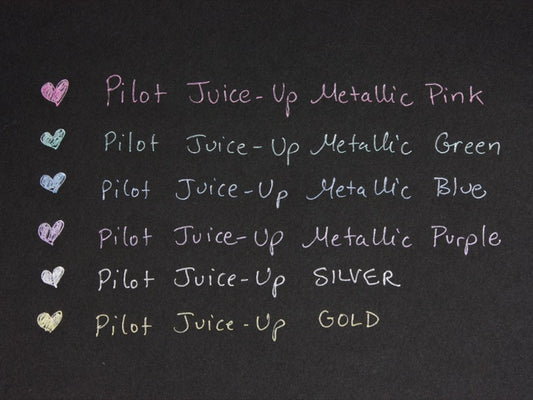 Pilot Juice-Up Metallic Pink
Pilot Juice-Up Metallic Green
Pilot Juice-Up Metallic Blue
Pilot Juice-Up Metallic Purple
Pilot Juice-Up SILVER
Pilot Juice-Up GOLD